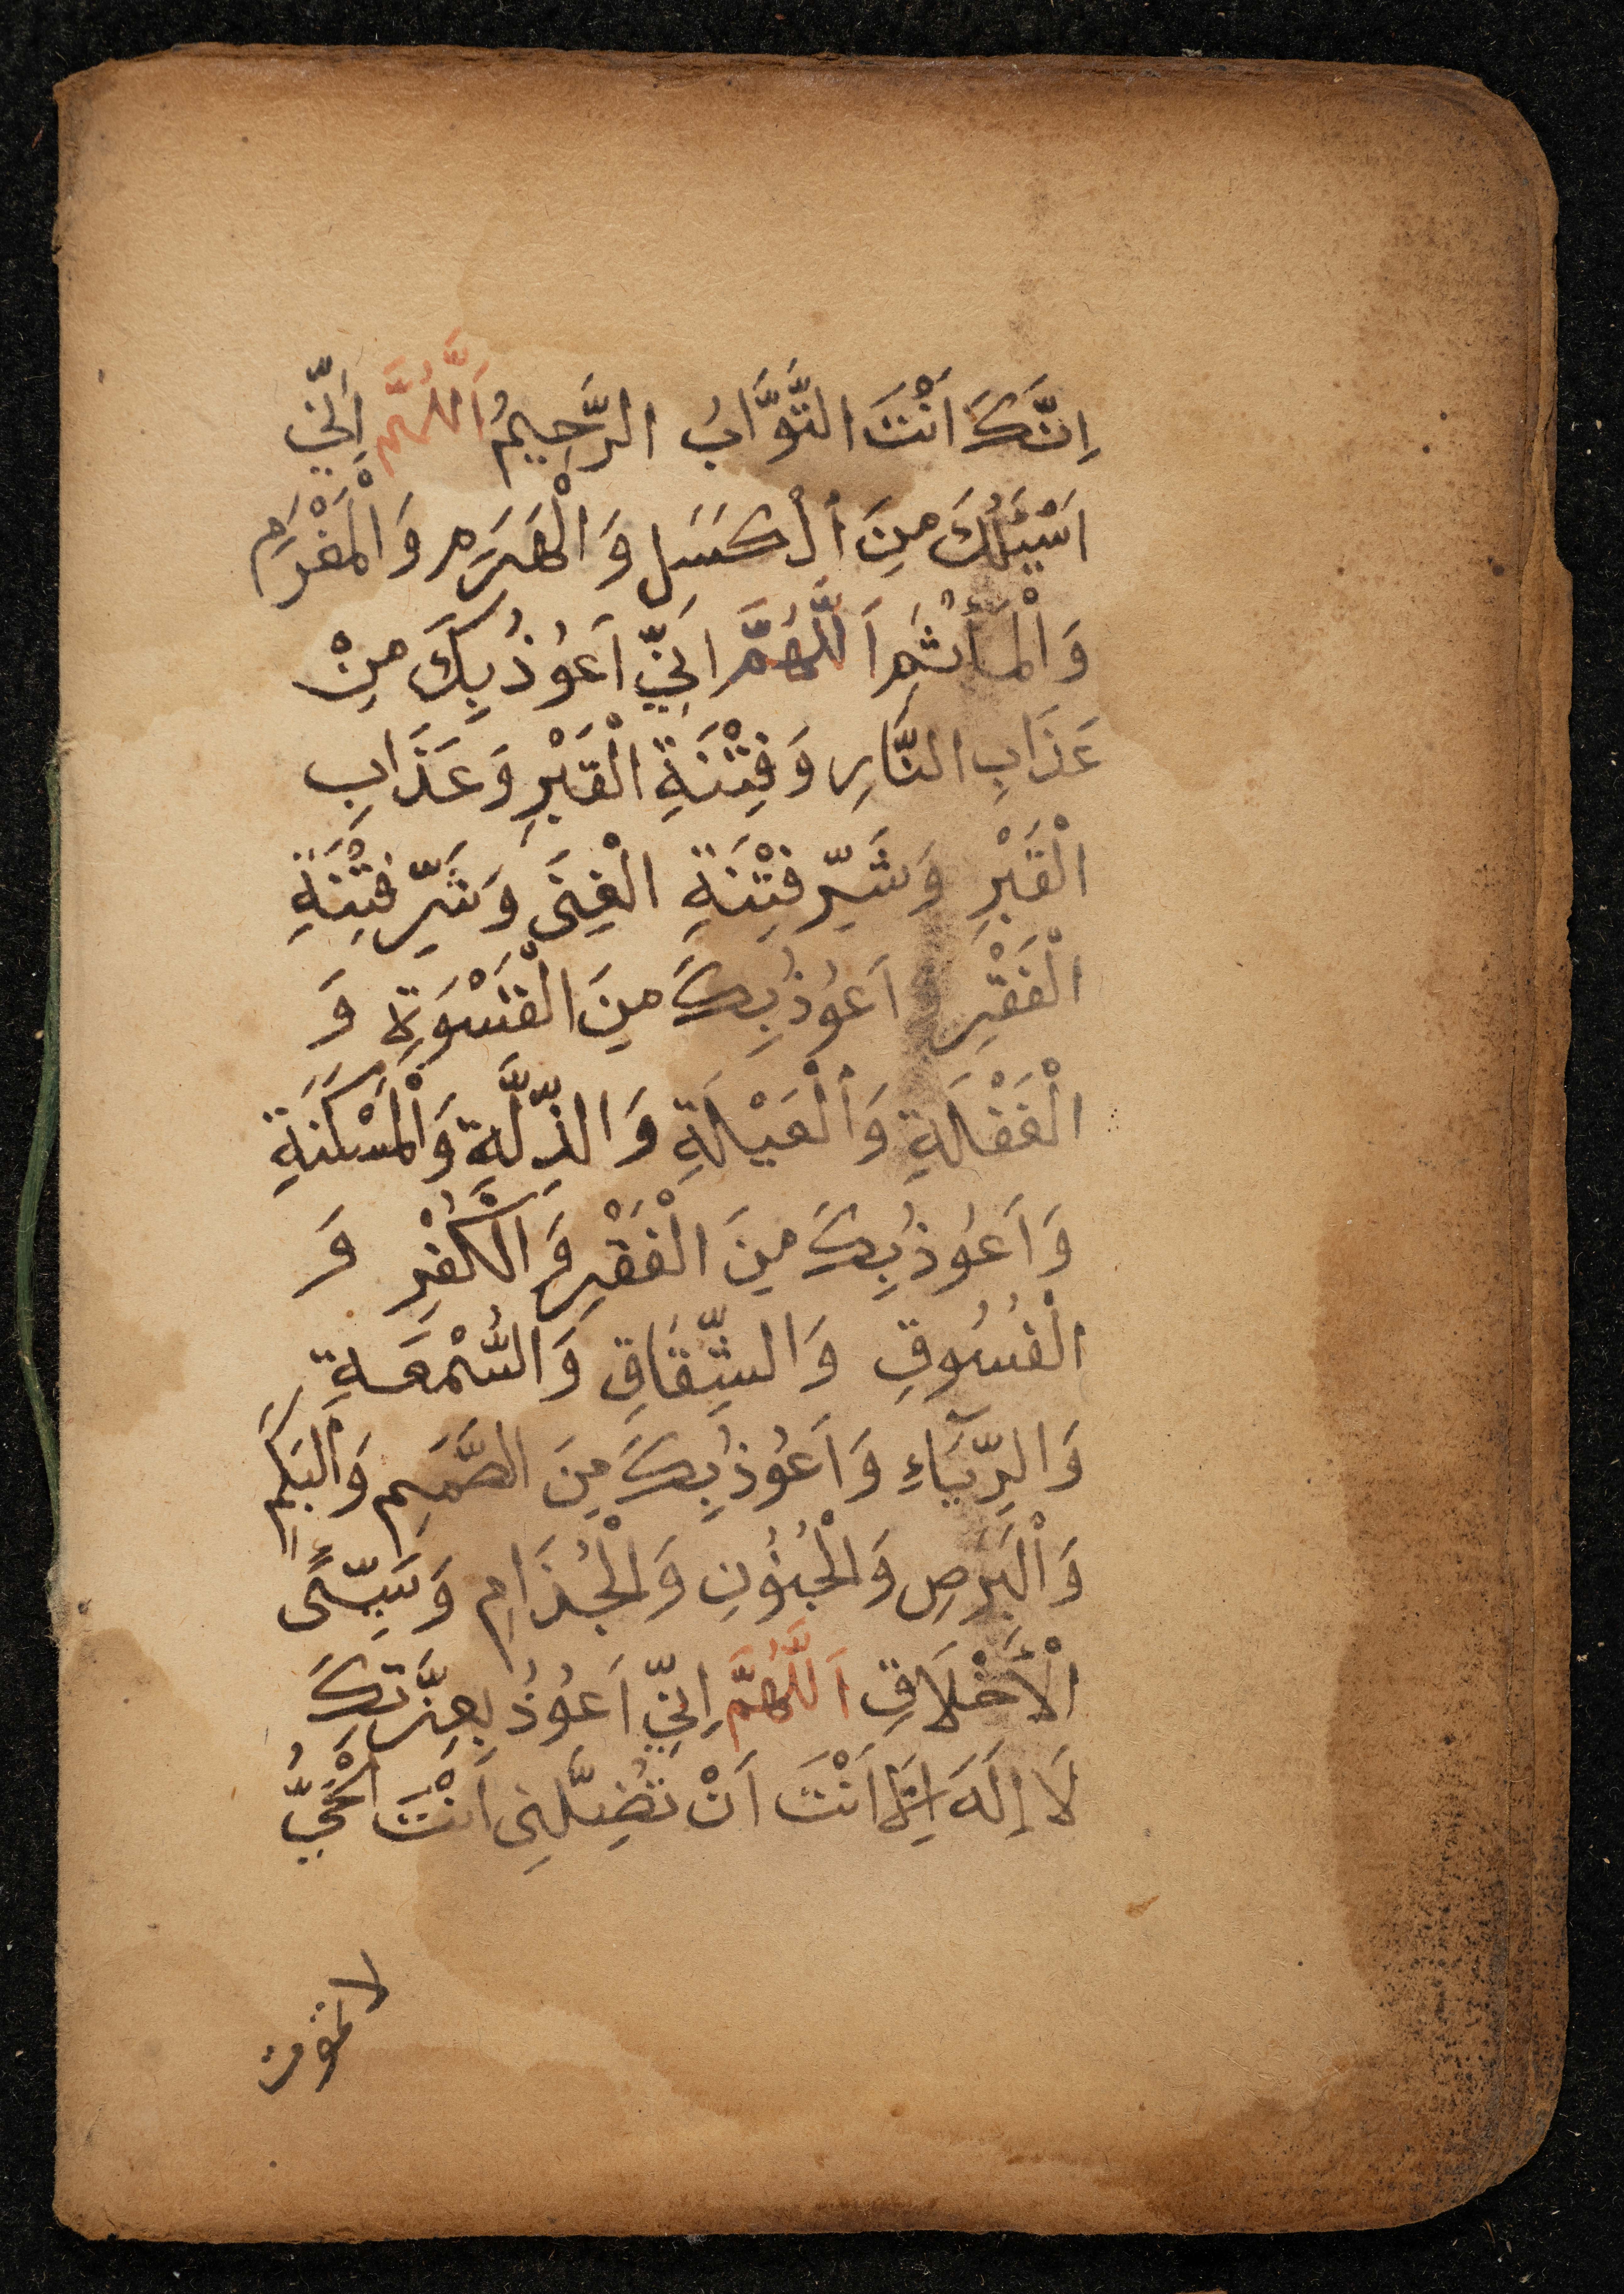 اِنَّكَ اَنْتَ التَّوَّابُ الرَّحِيمُ اَللّٰهُمَّ اِنِّي
اَسْئَلُكَ مِنَ الْكَسَلِ وَالْهَرَمِ وَالْمَغْرَمِ
وَالْمَأْثَمِ اَللّٰهُمَّ اِنِّي اَعُوذُ بِكَ مِنْ
عَذَابِ النَّارِ وَفِتْنَةِ الْقَبْرِ وَعَذَابِ
الْقَبْرِ وَشَرِّ فِتْنَةِ الْغِنَى وَشَرِّ فِتْنَةِ
الْفَقْرِ اَعُوذُ بِكَ مِنَ الْقَسْوَةِ وَ
الْغَفْلَةِ وَالْعَيْلَةِ وَالذِّلَّةِ وَالْمَسْكَنَةِ
وَاَعُوذُ بِكَ مِنَ الْفَقْرِ وَالْكُفْرِ وَ
الْفُسُوقِ وَالشِّقَاقِ وَالسُّمْعَةِ
وَالرِّيَآءِ وَاَعُوذُ بِكَ مِنَ الصَّمَمِ وَالْبَكَمِ
وَالْبَرَصِ وَالْجُنُونِ وَالْجُذَامِ وَسَيِّىءِ
الْأَخْلَاقِ اَللّٰهُمَّ اِنِّي اَعُوذُ بِعِزَّتِكَ
لَا اِلَهَ اِلَّا اَنْتَ اَنْ تُضِلَّنِى اَنْتَ الْحَيُّ
لا تموت